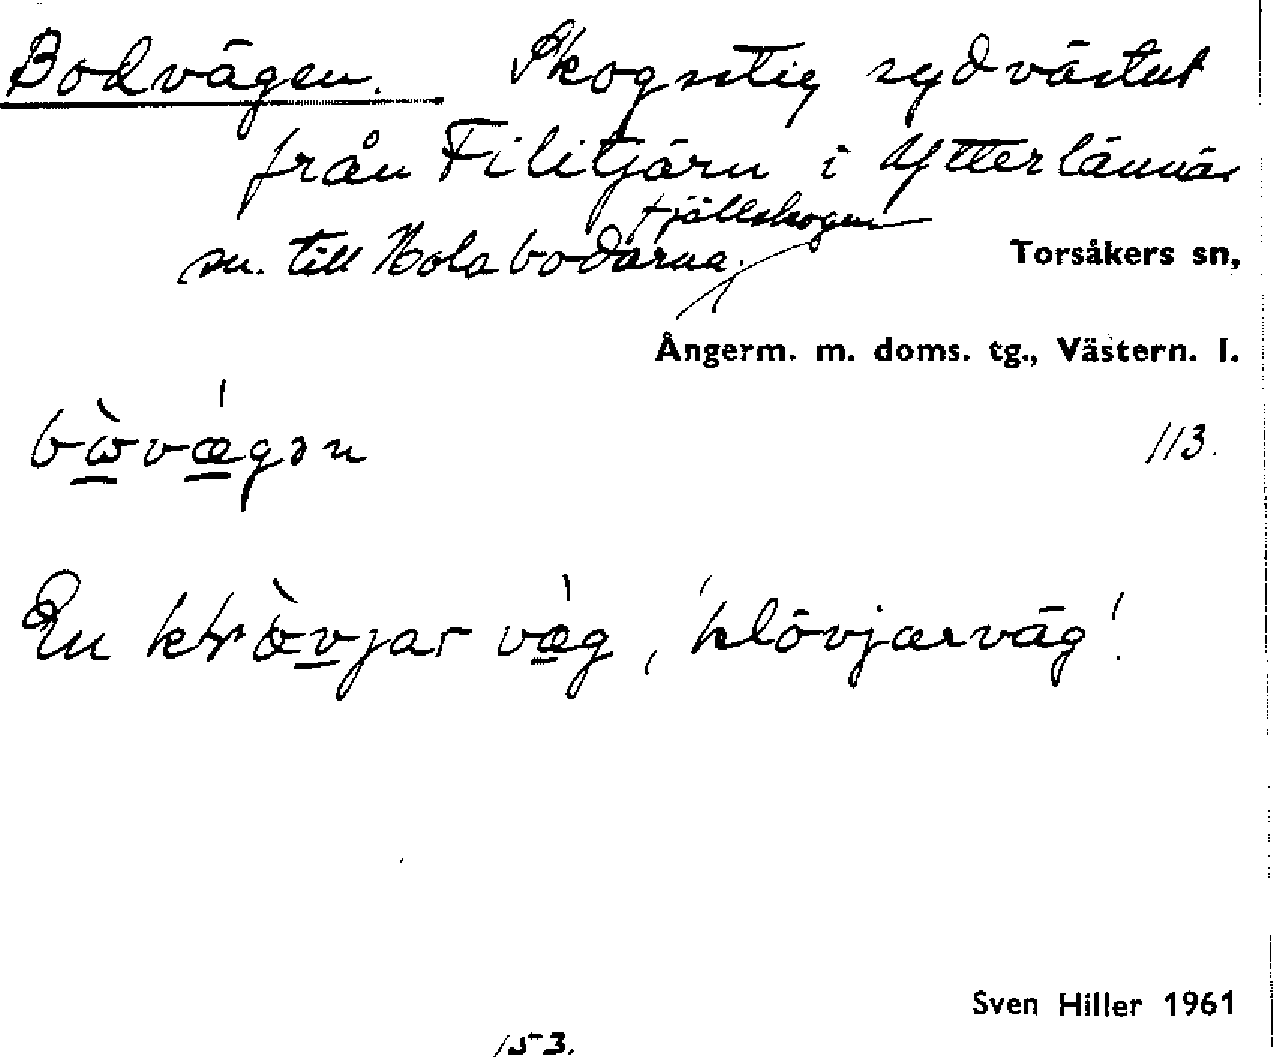 Bodvägen. Skogsstig sydvästut
från Filitjärn i Ytterlännäs
fjällskogen
sn. till Hola bodarna.
Torsåkers sn,
Ångerm. m. doms. tg., Västern. l.
bὼvǽgən
113.
En klœ̀vjar væ̀g, 'klövjarväg'.
Sven Hiller 1961
153.